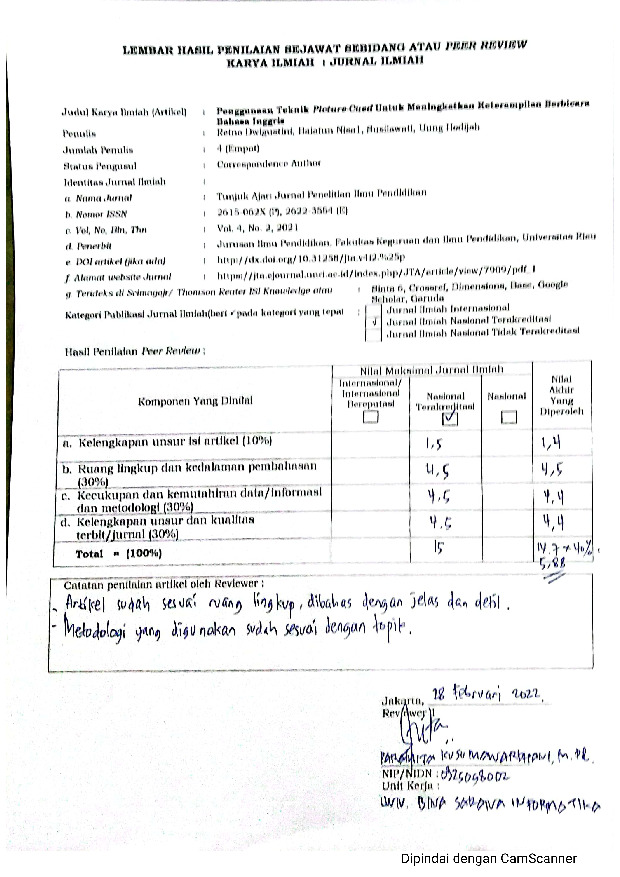 LEMBAR HASIL PENILAIAN SEJAWAT SEBIDANG ATAU PEER REVIEW
KARYA ILMIAH : JURNAL ILMIAH
Judul Karya Ilmiah (Artikel) : Penggunaan Teknik Picture Card Untuk Meningkatkan Keterampilan Berbicara
Bahasa Inggris
Penulis : Retno Dwigustini, Halatun Nisa1, Susilawati, Uung Hadijah
Jumlah Penulis : 4 (Empat)
Status Pengusul : Correspondence Author
Identitas Jurnal Ilmiah :
a. Nama Jurnal : Tunjuk Ajar: Jurnal Penelitian Ilmu Pendidikan
b. Nomor ISSN : 2615-062X (P), 2622-3564 (E)
c. Vol, No, Bln, Thn : Vol. 4, No. 2, 2021
d. Penerbit : Jurusan Ilmu Pendidikan, Fakultas Keguruan dan Ilmu Pendidikan, Universitas Riau
e. DOI artikel (jika ada) :
f. Alamat website Jurnal : https://jta.ejournal.unri.ac.id/index.php/JTA/article/view/7909/pdf_1
g. Terindeks di Scimagojr/ Thomson Reuter ISI Knowledge atau : Sinta 6, Crossref, Dimensions, Base, Google
Scholar, Garuda
Kategori Publikasi Jurnal Ilmiah(beri ✓pada kategori yang tepat : Jurnal Ilmiah Internasional
√ Jurnal Ilmiah Nasional Terakreditasi
Jurnal Ilmiah Nasional Tidak Terakreditasi
Hasil Penilaian Peer Review :
Komponen Yang Dinilai
Nilai Maksimal Jurnal Ilmiah
Internasional/
Internasional
Bereputasi
Nasional
Terakreditasi
✓
Nasional
Nilai
Akhir
Yang
Diperoleh
a. Kelengkapan unsur isi artikel (10%) 1,5 1,4
b. Ruang lingkup dan kedalaman pembahasan
(30%) 4,5 4,5
c. Kecukupan dan kemutahiran data/informasi
dan metodologi (30%) 4,5 4,4
d. Kelengkapan unsur dan kualitas
terbit/jurnal (30%) 4,5 4,4
Total = (100%) 15 14.7 x 40%
5,88
Catatan penilaian artikel oleh Reviewer :
- Artikel sudah sesuai ruang lingkup, dibahas dengan jelas dan detil.
- Metodologi yang digunakan sudah sesuai dengan topik.
Jakarta, 28 Februari 2022
Reviewer
KUSUMAWARDHANI, M.Pd.
NIP/NIDN : 0325098002
Unit Kerja :
UNIV. BINA SARANA INFORMATIKA
Dipindai dengan CamScanner